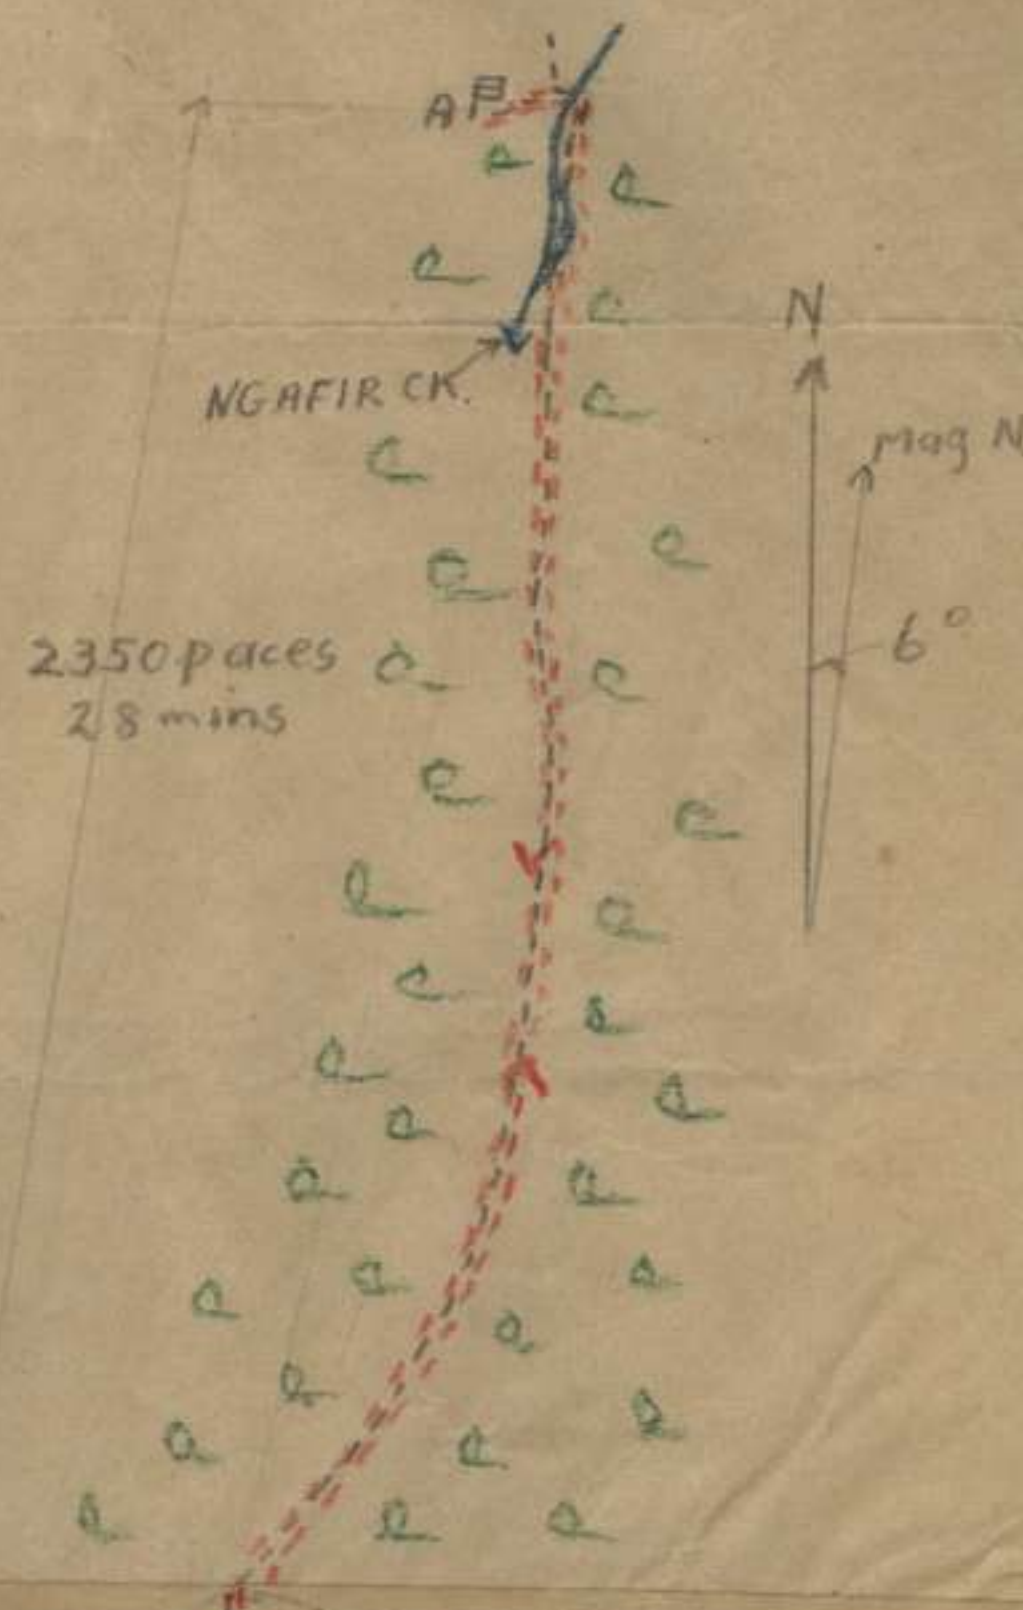 AP
N
NGAFIR CK.
Mag N
6°
2350 paces
28 mins